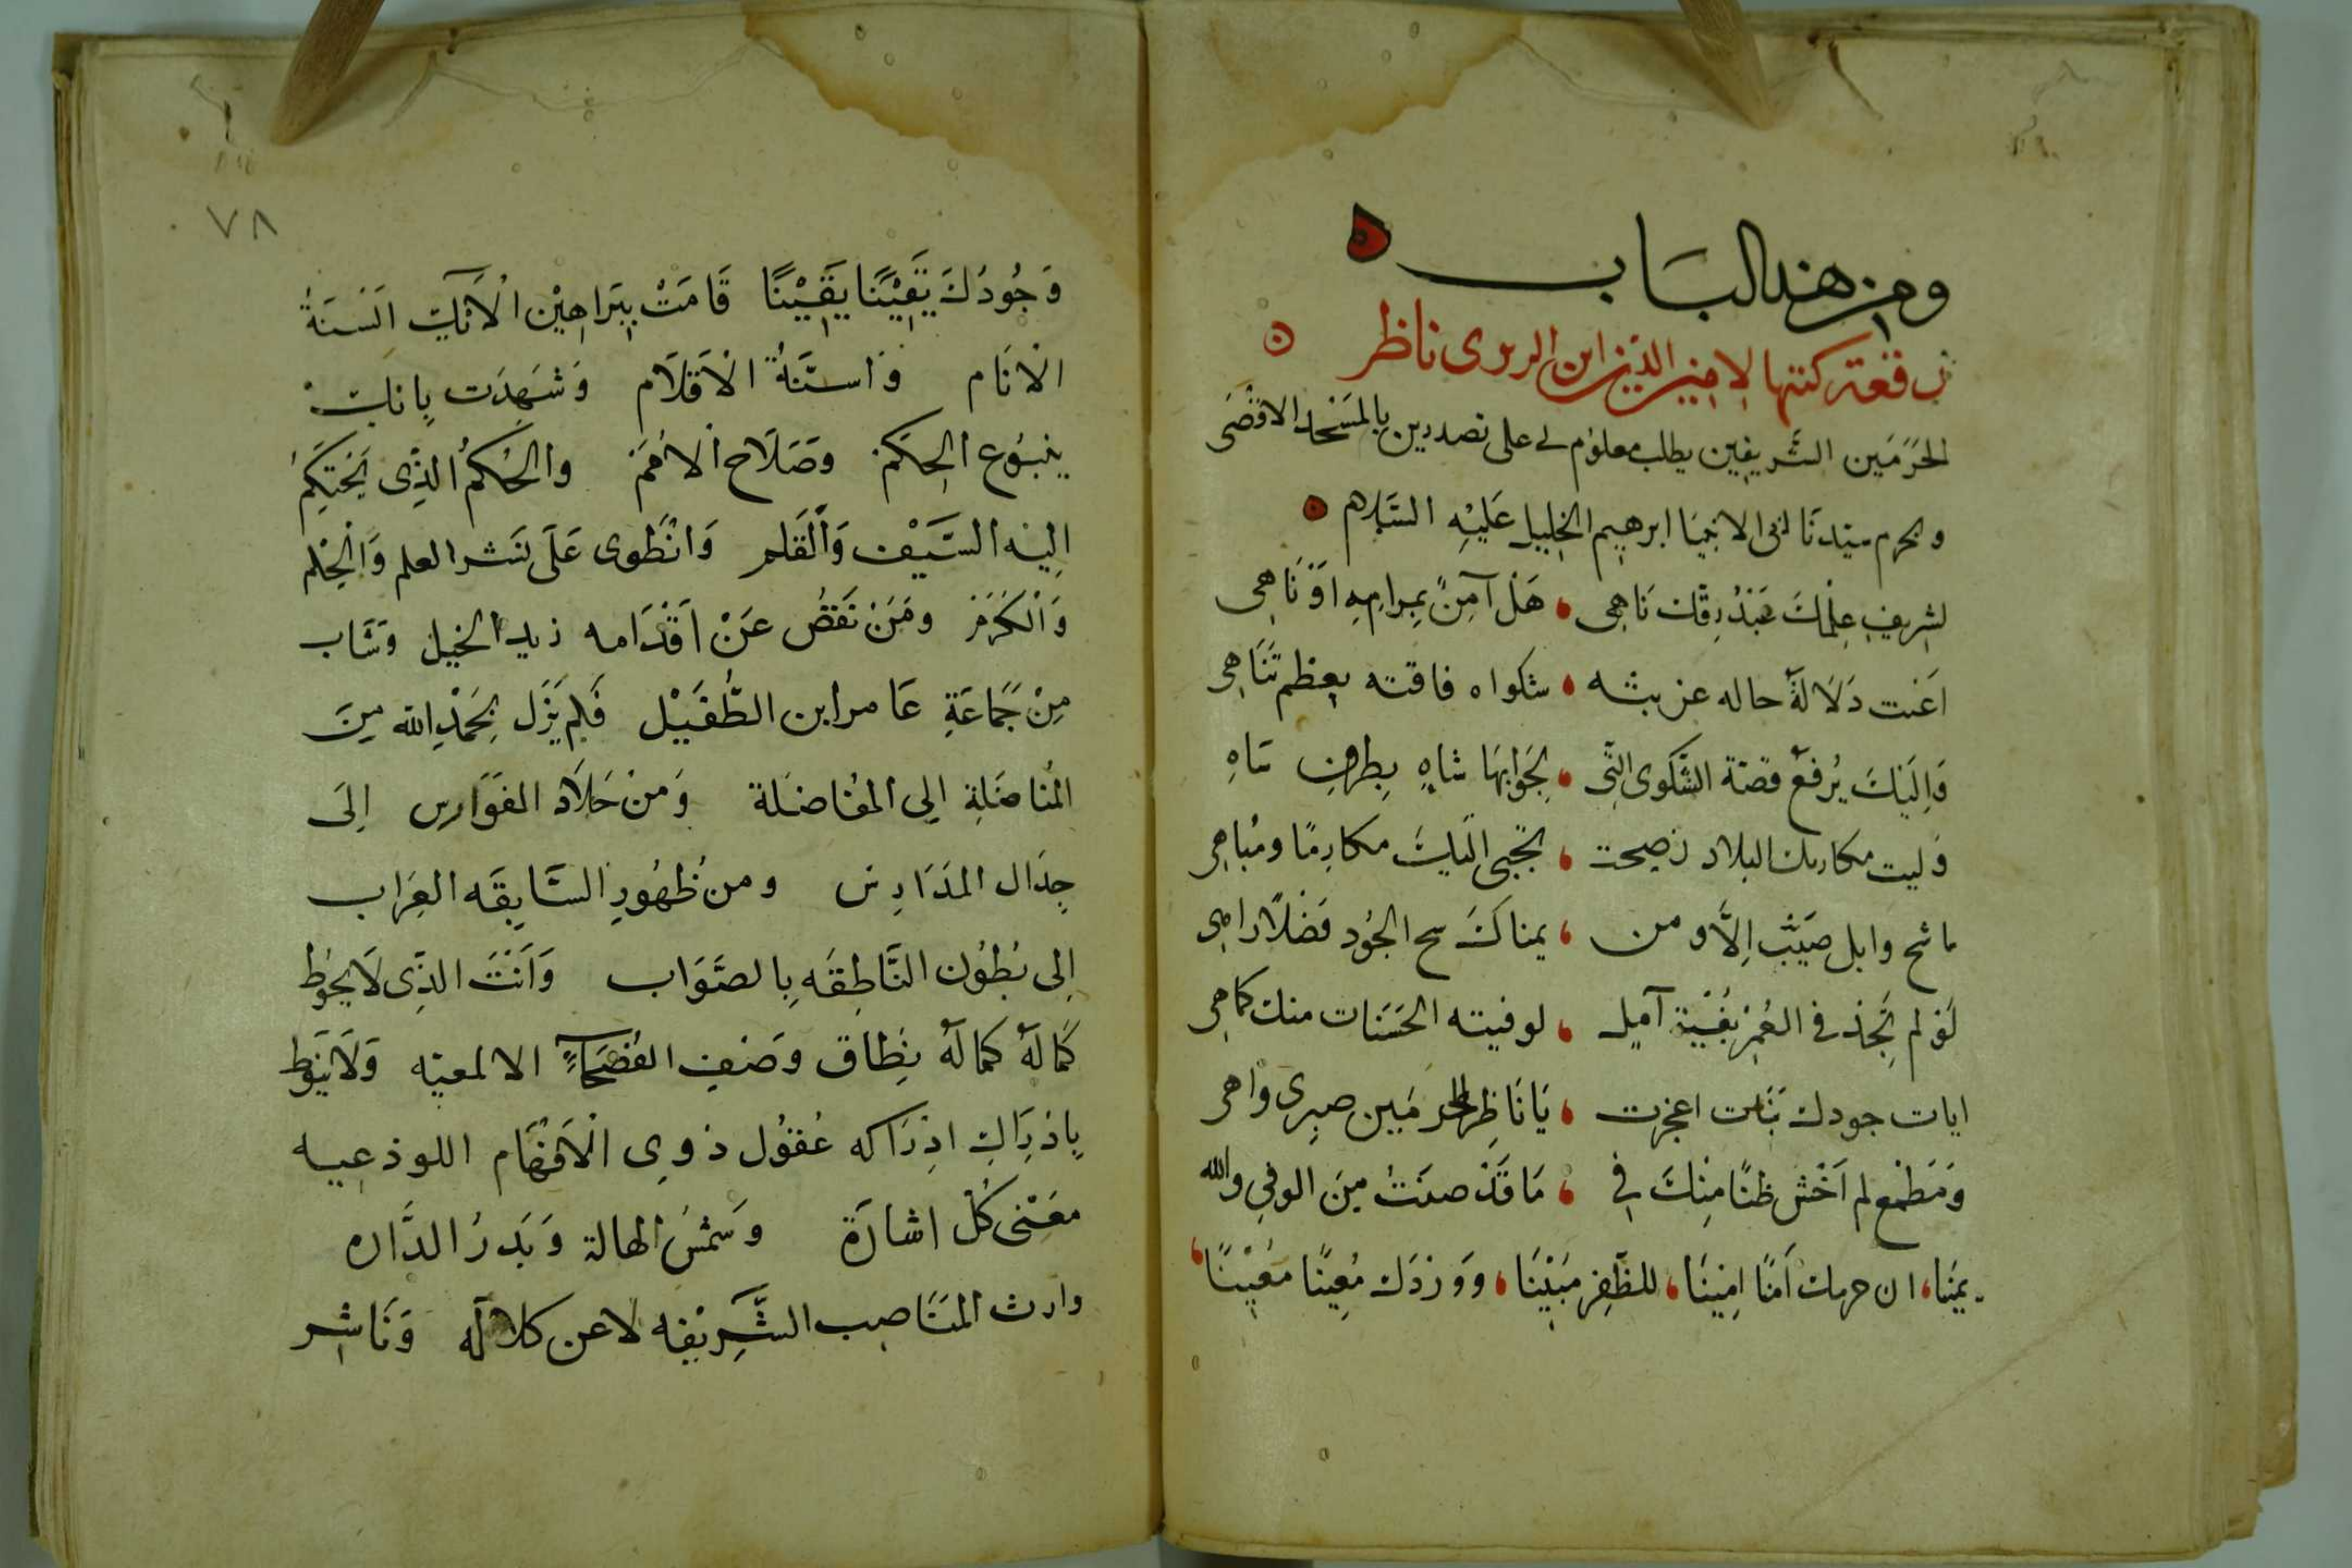 ومن هذا الباب
رقعة كتبتها لامين الدين ابن البربرى ناظر
الحَرَمَين الشَّريفين يطلب معلوم لى على تصديرين بالمَسْجد الاقْصَى
وبحرم سَيّدنَا ابى الانبيَا ابرهيم الخليل عَليْهِ السَّلام
لشريفِ عِلْمكَ عَبْدُ رِقّك نَاهِى ، هَلْ آمِنٌ بمرامِهِ اوْ نَاهِى
اَغنت دَلَالَةُ حاله عن بثه ، شكواه فاقته بعظم تَنَاهِى
وَاِليْكَ يُرفعُ قصّة الشَّكوى التَّى ، بجَوابهَا شاهٍ بِطرفِ سَاهِ
وَليت مكارمك البلاد نصيحت ، تجْبى اليك مكارمًا ومُباهى
ما سَح وابل صَيّب اِلَّا ومن ، يمناكَ سح الجُود فَضْلًا
لَوْ لم تَجِدْ فى العُمْر بُغْيَة آمِلٍ ، لوفيته الحَسَنات منك كما هى
ايات جودك بَيّنات اعجزت ، يَا نَاظِرَ الحرمَين صبرِى واهى
وَمَطْمع لم اَخْش ظنًا مِنْكَ فى ، مَا قَدْ صدَتُ مِنَ الوفى والله
يمينًا ، ان حرمك اَمنًا امِينَا ، للظَّفِر مبَيْنًا ، وَوِرْدَك مُعِينًا مَعْيِنًا ،
٧٨
وَجُودُكَ يَقِيْنًا يَقِيْنًا قَامَتْ بِبَرَاهِيْن الْآئك اَلسْنَةُ
الْانَام وَاسنَّةُ الْاَقلَام وَشَهِدَت بِانك
ينبُوع الحِكَم وصَلَاح الْاُمَم والحَكمُ الذِّى يَحْتكِمُ
اِليْه السَّيْف وَالْقَلم وَانْطَوى عَلَى نَشر العلم وَالْحِلم
وَالْكَرَم ومَنْ نقصُ عَنْ اَقْدَامه زيد الخيل وشَاب
مِنْ جَمَاعَةِ عَامر ابن الطُّفَيْل فَلم يَزَل بحَمْدِ الله مِنَ
المُناضَلةِ الى المفُاضَلة وَمنْ جَلَاد الفَوَارس اِلَى
جِدَال المدَارِس ومنْ ظُهُورِ السَّابِقَه العِرَاب
اِلى بُطُون النَّاطِقَه بِالصَّوَاب وَاَنْتَ الذِّى لَا يحُوط
كَمالهُ كمالهُ بنِطاق وَصْفِ الفُصَحَاءِ الالمعيّه وَلَا يَنُوط
بِادْرَاكِ ادْرَاكه عُقوُل ذوى الْاَفهَام اللوذعيه
مَعْنى كُلّ اشارَة وَشمْسُ الهالة وَبَدرُ الدَّاره
وارث المنَاصِب الشَّرِيْفه لا عن كلاله وَنَاشِر